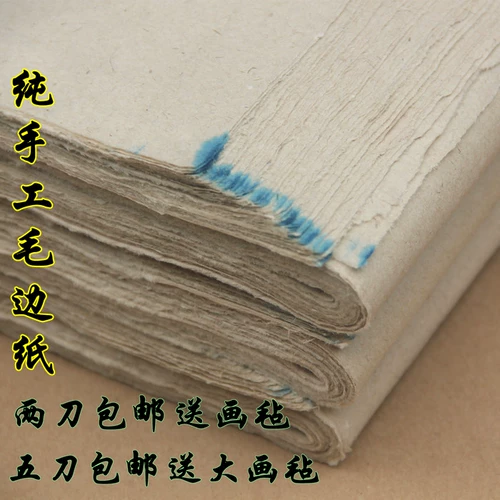 纯手工毛边纸
两刀包邮送画毡
五刀包邮送大画毡